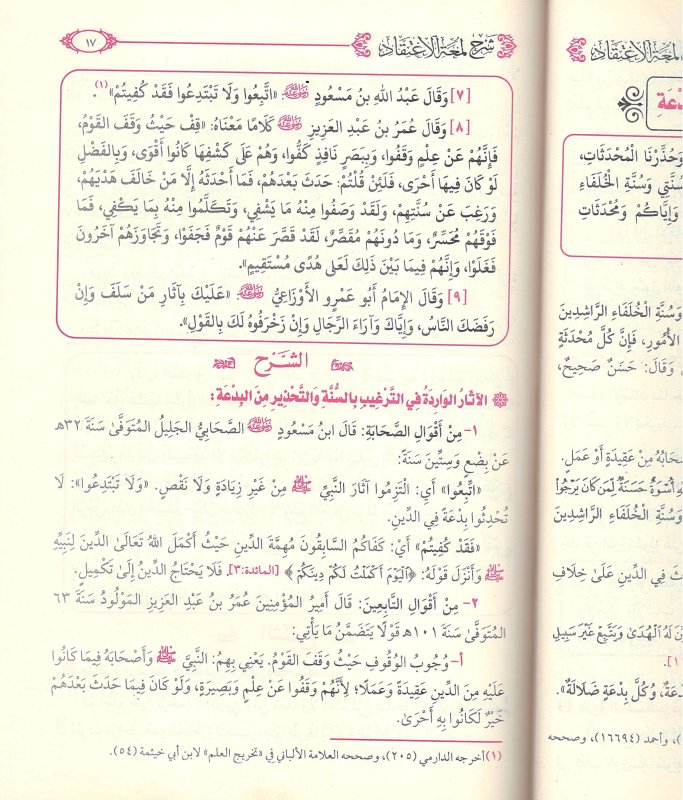 شرح لمعة الاعتقاد
١٧
[٧] وَقَالَ عَبْدُ اللهِ بنُ مَسْعُودٍ رَضِيَ اللهُ عَنْهُ: «اتَّبِعُوا وَلَا تَبْتَدِعُوا فَقَدْ كُفِيتُمْ»(١).
[٨] وَقَالَ عُمَرُ بنُ عَبْدِ العَزِيزِ رَضِيَ اللهُ عَنْهُ كَلَامًا مَعْنَاهُ: «قِفْ حَيْثُ وَقَفَ القَوْمُ،
فَإِنَّهُمْ عَنْ عِلْمٍ وَقَفُوا، وَبِبَصَرٍ نَافِذٍ كَفُّوا، وَهُمْ عَلَى كَشْفِهَا كَانُوا أَقْوَى، وَبِالفَضْلِ
لَوْ كَانَ فِيهَا أَحْرَى، فَلَئِنْ قُلْتُمْ: حَدَثَ بَعْدَهُمْ، فَمَا أَحْدَثَهُ إِلَّا مَنْ خَالَفَ هَدْيَهُمْ،
وَرَغِبَ عَنْ سُنَّتِهِمْ، وَلَقَدْ وَصَفُوا مِنْهُ مَا يَشْفِي، وَتَكَلَّمُوا مِنْهُ بِمَا يَكْفِي، فَمَا
فَوْقَهُمْ مُحَسِّرٌ، وَمَا دُونَهُمْ مُقَصِّرٌ، لَقَدْ قَصَّرَ عَنْهُمْ قَوْمٌ فَجَفَوْا، وَتَجَاوَزَهُمْ آخَرُونَ
فَغَلَوْا، وَإِنَّهُمْ فِيمَا بَيْنَ ذَلِكَ لَعَلَى هُدًى مُسْتَقِيمٍ».
[٩] وَقَالَ الإِمَامُ أَبُو عَمْرٍو الأَوْزَاعِيُّ رَضِيَ اللهُ عَنْهُ: «عَلَيْكَ بِآثَارِ مَنْ سَلَفَ وَإِنْ
رَفَضَكَ النَّاسُ، وَإِيَّاكَ وَآرَاءَ الرِّجَالِ وَإِنْ زَخْرَفُوهُ لَكَ بِالقَوْلِ».
الشَّرْح
الآثارُ الوَارِدَةُ فِي التَّرْغِيبِ بِالسُّنَّةِ وَالتَّحْذِيرِ مِنَ البِدْعَةِ:
١- مِنْ أَقْوَالِ الصَّحَابَةِ: قَالَ ابنُ مَسْعُودٍ رَضِيَ اللهُ عَنْهُ الصَّحَابِيُّ الجَلِيلُ المُتَوَفَّى سَنَةَ ٣٢هـ
عَنْ بِضْعٍ وَسِتِّينَ سَنَةً:
«اتَّبِعُوا» أَيِ: الْتَزِمُوا آثَارَ النَّبِيِّ ﷺ مِنْ غَيْرِ زِيَادَةٍ وَلَا نَقْصٍ. «وَلَا تَبْتَدِعُوا»: لَا
تُحْدِثُوا بِدْعَةً فِي الدِّينِ.
«فَقَدْ كُفِيتُمْ» أَيْ: كَفَاكُمُ السَّابِقُونَ مُهِمَّةَ الدِّينِ حَيْثُ أَكْمَلَ اللهُ تَعَالَى الدِّينَ لِنَبِيِّهِ
ﷺ وَأَنْزَلَ قَوْلَهُ: ﴿الْيَوْمَ أَكْمَلْتُ لَكُمْ دِينَكُمْ﴾ [المائدة:٣]. فَلَا يَحْتَاجُ الدِّينُ إِلَى تَكْمِيلٍ.
٢- مِنْ أَقْوَالِ التَّابِعِينَ: قَالَ أَمِيرُ المُؤْمِنِينَ عُمَرُ بنُ عَبْدِ العَزِيزِ المَوْلُودُ سَنَةَ ٦٣
المُتَوَفَّى سَنَةَ ١٠١هـ قَوْلًا يَتَضَمَّنُ مَا يَأْتِي:
أ- وُجُوبُ الوُقُوفِ حَيْثُ وَقَفَ القَوْمُ. يَعْنِي بِهِمُ: النَّبِيَّ ﷺ وَأَصْحَابَهُ فِيمَا كَانُوا
عَلَيْهِ مِنَ الدِّينِ عَقِيدَةً وَعَمَلًا؛ لِأَنَّهُمْ وَقَفُوا عَنْ عِلْمٍ وَبَصِيرَةٍ، وَلَوْ كَانَ فِيمَا حَدَثَ بَعْدَهُمْ
خَيْرٌ لَكَانُوا بِهِ أَحْرَى.
(١) أخرجه الدارمي (٢٠٥)، وصححه العلامة الألباني في «تخريج العلم» لابن أبي خيثمة (٥٤).
لمعة الاعتقاد
وَحُذِّرْنَا الْمُحْدَثَاتِ،
سُنَّتِي وَسُنَّةِ الْخُلَفَاءِ
وَإِيَّاكُمْ وَمُحْدَثَاتِ
وَسُنَّةِ الْخُلَفَاءِ الرَّاشِدِينَ
الأُمُورِ، فَإِنَّ كُلَّ مُحْدَثَةٍ
وَقَالَ: حَسَنٌ صَحِيحٌ،
مِنْ عَقِيدَةٍ أَوْ عَمَلٍ.
أُسْوَةٌ حَسَنَةٌ لِمَنْ كَانَ يَرْجُوا
وَسُنَّةِ الْخُلَفَاءِ الرَّاشِدِينَ
فِي الدِّينِ عَلَى خِلَافِ
لَهُ الْهُدَى وَيَتَّبِعْ غَيْرَ سَبِيلِ
وَكُلُّ بِدْعَةٍ ضَلَالَةٌ».
وأحمد (١٦٦٩٤)، وصححه